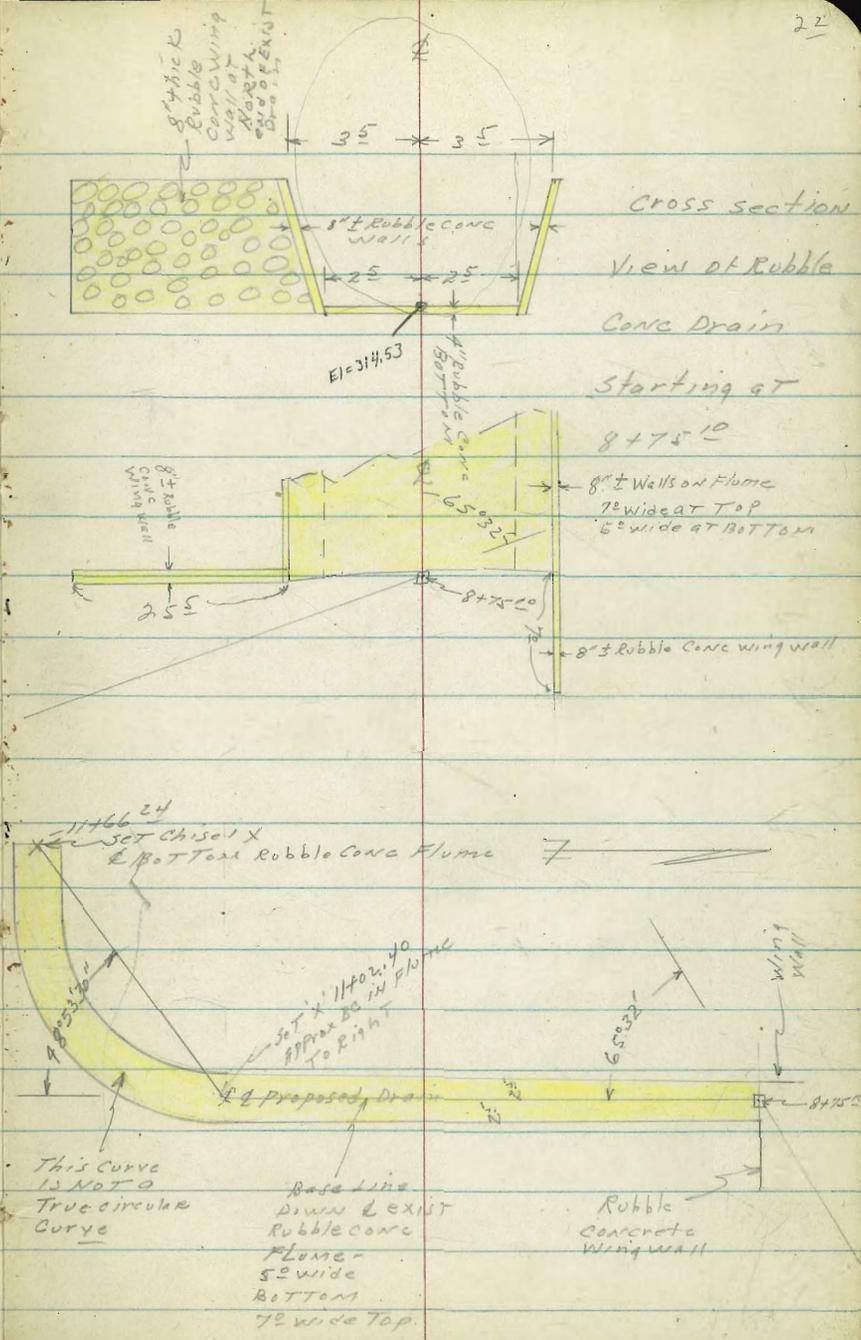 22
8" thick
Rubble
Conc Wing
Wall at
North
end of Exist
Drain
3 5
3 5
8"± Rubble Conc
Walls
2 5
2 5
El=314.53
4" Rubble Conc
BOTTOM
Cross section
View of Rubble
Conc Drain
Starting at
8+75 10
8"± Rubble
Conc
Wing Wall
65°32'
8"± Walls on Flume
7º wide at Top
5º wide at BOTTOM
2 5 5
8+75
7º
8"± Rubble Conc wing wall
11+66 24
SET Chisel X
℄ BOTTOM Rubble Conc Flume
48°53'30"
Set 'X' 11+02.40
Approx BC in Flume
To Right
65°32'
Wing
Wall
℄ Proposed Drain
2 5
2 5
8+75
This Curve
is NOT a
True circular
Curve
Base Line
Down ℄ exist
Rubble Conc
Flume-
5º wide
BOTTOM
7º wide Top.
Rubble
Concrete
Wing wall